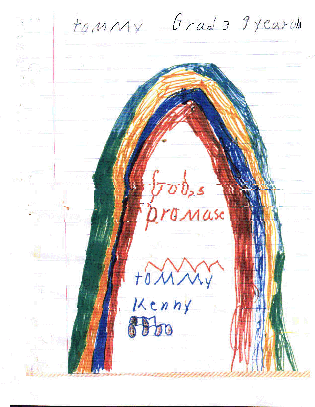 tommy Grad 3 9 years
God,s
promase
tommy
Kenny